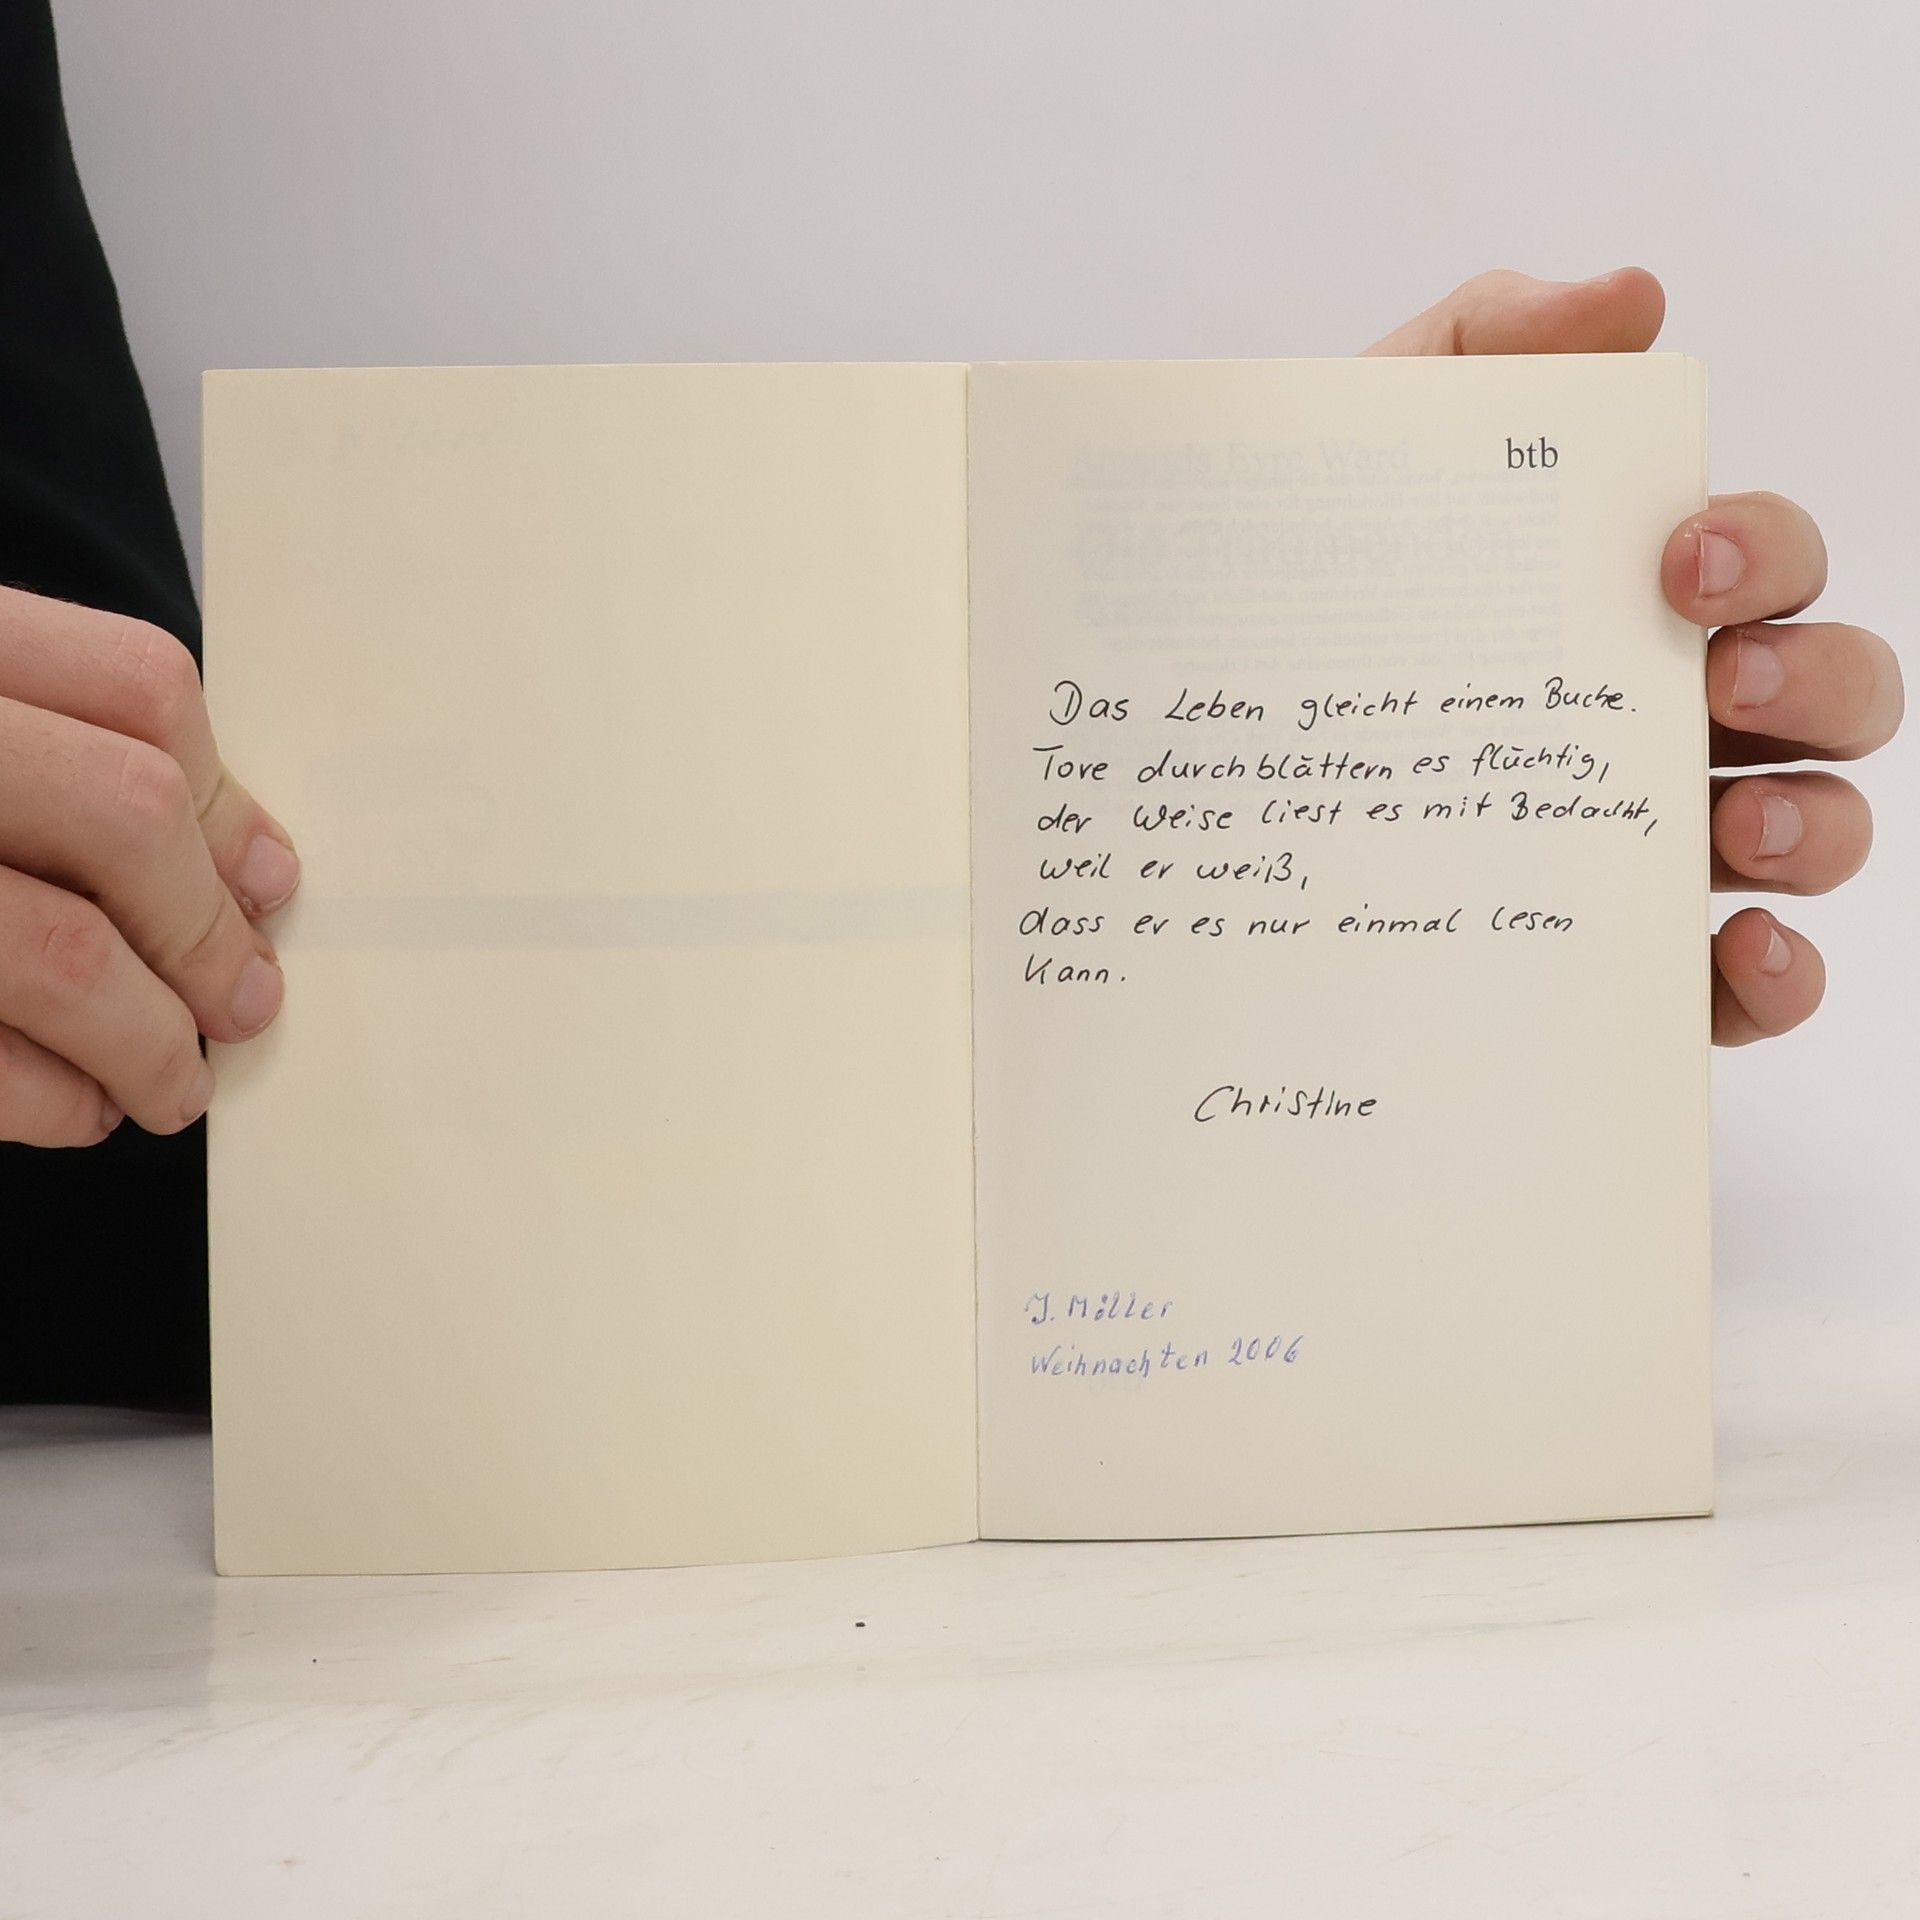 btb
Amanda Eyre Ward
Das Leben gleicht einem Buche.
Tore durchblättern es flüchtig,
der Weise liest es mit Bedacht,
weil er weiß,
dass er es nur einmal lesen
kann.
Christine
J. Möller
Weihnachten 2006